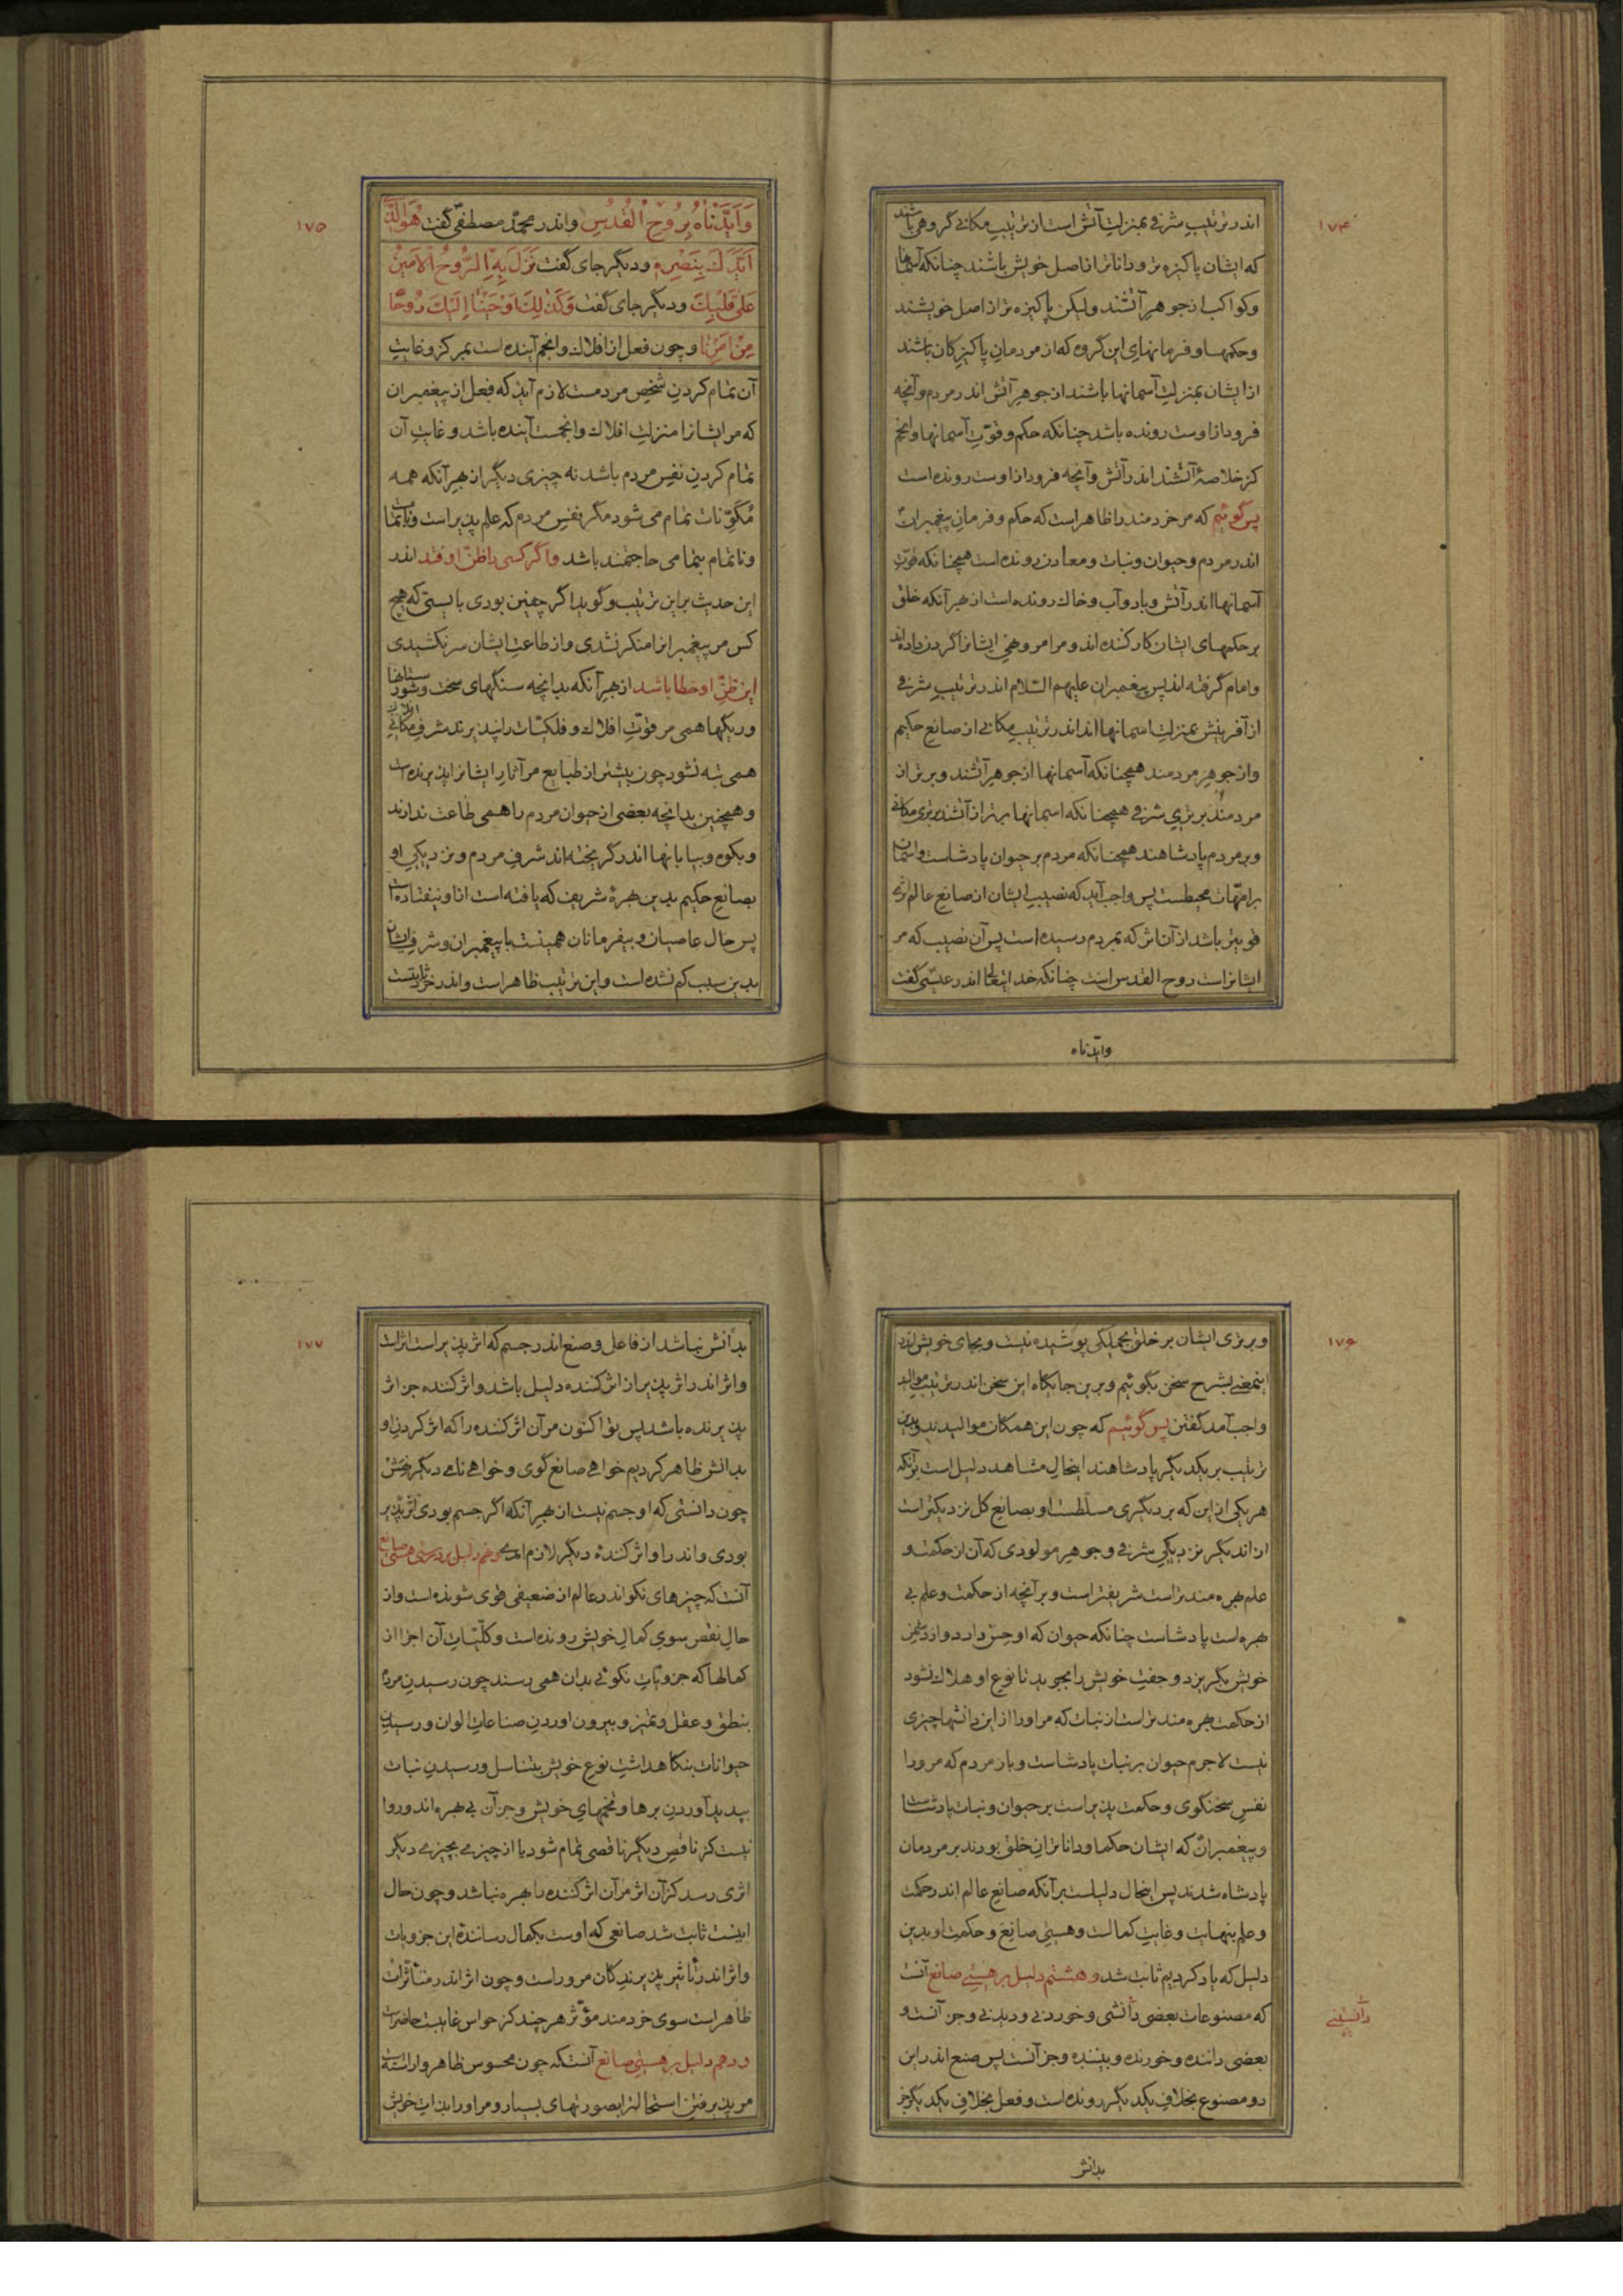 ۱۷۴
اندر ترتیبِ شرفی بمنزلتِ آتش است از ترتیبِ مکانی گروهی باشند
که ایشان پاکیزه تر و داناتر از اصل خویش باشند چنانکه آسمانها
و کواکب از جوهرِ آتشند ولیکن پاکیزه تر از اصل خویشند
و حکمها و فرمانهای این گروه که از مردمان پاکیزگان باشند
از ایشان بمنزلتِ آسمانها باشند از جوهرِ آتش اندر مردم و آنچه
فرود از اوست رونده باشد چنانکه حکم و قوّتِ آسمانها و انجم
کز خلاصهٔ آتشند اندر آتش و آنچه فرود از اوست رونده است
پس گوئیم که مر خردمند را ظاهر است که حکم و فرمان پیغمبران
اندر مردم و حیوان و نبات و معادن رونده است همچنانکه قوّتِ
آسمانها اندر آتش و باد و آب و خاك رونده است از بهر آنکه خلق
بر حکمهای ایشان کار کننده اند و مر امر و نهی ایشانرا گردن داده اند
و امام گرفته اند پس پیغمبران علیهم السّلام اندر ترتیبِ شرفی
از آفرینش بمنزلت اسمانها اند اندر ترتیبِ مکانی از صانعِ حکیم
و از جوهرِ مردمند همچنانکه آسمانها از جوهرِ آتشند و برتر از
مردمند برتریِ شرفی همچنانکه اسمانها برتر از آتشند برتری مکانی
و بر مردم پادشاهند همچنانکه مردم بر حیوان پادشاست و آسمان
بر امّهات محیطست پس واجب آید که نصیبِ ایشان از صانع عالم اثری
قویتر باشد از آن اثر که بمردم رسیده است پس آن نصیب که مر
ایشانراست روح القدس است چنانکه خدایتعالی اندر عیسی گفت
وایّدناه
۱۷۵
وَاَیَّدْنَاهُ بِرُوحِ الْقُدُسِ و اندر محمّد مصطفی گفت هُوَ الَّذی
اَیَّدَكَ بِنَصْرِهِ و دیگر جای گفت نَزَلَ بِهِ الرُّوحُ الْاَمینُ
عَلی قَلْبِكَ و دیگر جای گفت وَکَذلِكَ اَوْحَیْنا اِلَیْكَ رُوحًا
مِنْ اَمْرِنا و چون فعل از افلاك و انجم آینده است بمرکز و غایتِ
آن تمام کردنِ شخصِ مردمست لازم آید که فعل از پیغمبران
که مر ایشانرا منزلتِ افلاك و انجمست آینده باشد و غایتِ آن
تمام کردنِ نفسِ مردم باشد نه چیزی دیگر از بهر آنکه همه
مُکوّنات تمام می شود مگر نفسِ مردم که علم پذیر است و ناتمامست
و ناتمام بتمامی حاجتمند باشد و اگر کسی را ظنّ اوفتد اندر
این حدیث بر این ترتیب و گوید اگر چنین بودی بایستی که هیچ
کس مر پیغمبرانرا منکر نشدی و از طاعتِ ایشان سر نکشیدی
این ظنّ او خطا باشد از بهر آنکه بدانچه سنگهای سخت و شورستانها
و ریگها همی مر قوّتِ افلاك و فلکیّات را نپذیرند شرفِ مکانی
افلاك
همی تبه نشود چون بیشتر از طبایع مر آثارِ ایشانرا پذیرنده است
و همچنین بدانچه بعضی از حیوان مردم را همی طاعت ندارند
و بکوه و بیابانها اندر گریخته اند شرفِ مردم و نزدیکیِ او
بصانعِ حکیم بدین بهرهٔ شریف که یافته است از او نیفتاده است
پس حال عاصیان و بیفرمانان همینست با پیغمبران و شرفِ ایشان
بدین سبب کم نشده است و این ترتیب ظاهر است و اندر خرد ثابتست
۱۷۶
و برتری ایشان بر خلق بجملگی پوشیده نیست و بجای خویش اندر
اینمعنی بشرح سخن بگوئیم و بر این جایگاه این سخن اندر ترتیبِ موالید
واجب آمد گفتن پس گوئیم که چون این همگان موالیدند و بدین
ترتیب بر یکدیگر پادشاهند اینحالِ مشاهد دلیل است بر آنکه
هر یکی از این که بر دیگری مسلّطست او بصانعِ کل نزدیکتر است
از آن دیگر نزدیکیِ شرفی و جوهرِ مولودی که آن از حکمت و
علم بهره مندتر است شریفتر است و بر آنچه از حکمت و علم بی
بهره است پادشاست چنانکه حیوان که او حسّ دارد و از دشمن
خویش بگریزد و جفتِ خویش را بجوید تا نوعِ او هلاك نشود
از حکمت بهره مندتر است از نبات که مر او را از این دانشها چیزی
نیست لاجرم حیوان بر نبات پادشاست و باز مردم که مر او را
نفسِ سخنگوی و حکمت پذیر است بر حیوان و نبات پادشاست
و پیغمبران که ایشان حکما و داناتران خلق بودند بر مردمان
پادشاه شدند پس اینحال دلیلست بر آنکه صانعِ عالم اندر حکمت
و علم بنهایت و غایتِ کمالست و هستیِ صانع و حکمت او بدین
دلیل که یاد کردیم ثابت شد و هشتم دلیل بر هستیِ صانع آنست
که مصنوعات بعضی دانشی و خوردنی و دیدنی و جز آنست و
دانستنی
بعضی داننده و خورنده و بیننده و جز آنست پس صنع اندر این
دو مصنوع بخلافِ یکدیگر رونده است و فعل بخلافِ یکدیگر جز
بدانش
۱۷۷
بدانش نباشد از فاعل و صنع اندر جسم که اثر پذیر است اثر است
و اثر اندر اثر پذیر از اثر کننده دلیل باشد و اثر کننده جز اثر
پذیرنده باشد پس تو اکنون مر آن اثر کننده را که اثر کردنِ او
بدانش ظاهر کردیم خواهی صانع گوی و خواهی نامی دیگر نهش
چون دانستی که او جسم نیست از بهر آنکه اگر جسم بودی اثر پذیر
بودی و اندر او اثر کنندهٔ دیگر لازم امدی و نهم دلیل بر درستی هستی صانع
آنست که چیزهای نکو اندر عالم از ضعیفی قوی شونده است و از
حالِ نقص سویِ کمالِ خویش رونده است و کلّیّاتِ آن اجزا از
کمالها که جزویّاتِ نکوئی بدان همی رسند چون رسیدنِ مردم
بنطق و عقل و تمیز و بیرون اوردنِ صناعاتِ الوان و رسیدن
حیوانات بنگاهداشتِ نوعِ خویش بتناسل و رسیدنِ نبات
بپدید آوردنِ برها و تخمهای خویش و جز آن بی بهره اند و روا
نیست کز ناقص دیگر ناقصی تمام شود یا از چیزی بچیزی دیگر
اثری رسد کز آن اثر مر آن اثر کننده را بهره نباشد و چون حال
اینست ثابت شد صانعی که اوست بکمال رسانندهٔ این جزویات
و اثر اندر تأثیر پذیرندگان مر وراست و چون اثر اندر متأثّرات
ظاهر است سوی خردمند مؤثّر هر چند کز حواس غایبست حاضر است
و دهم دلیل بر هستی صانع آنستکه چون محسوس ظاهر و اراسته
مر پذیرفتن استحالت را بصورتهای بسیار و مر او را بذاتِ خویش